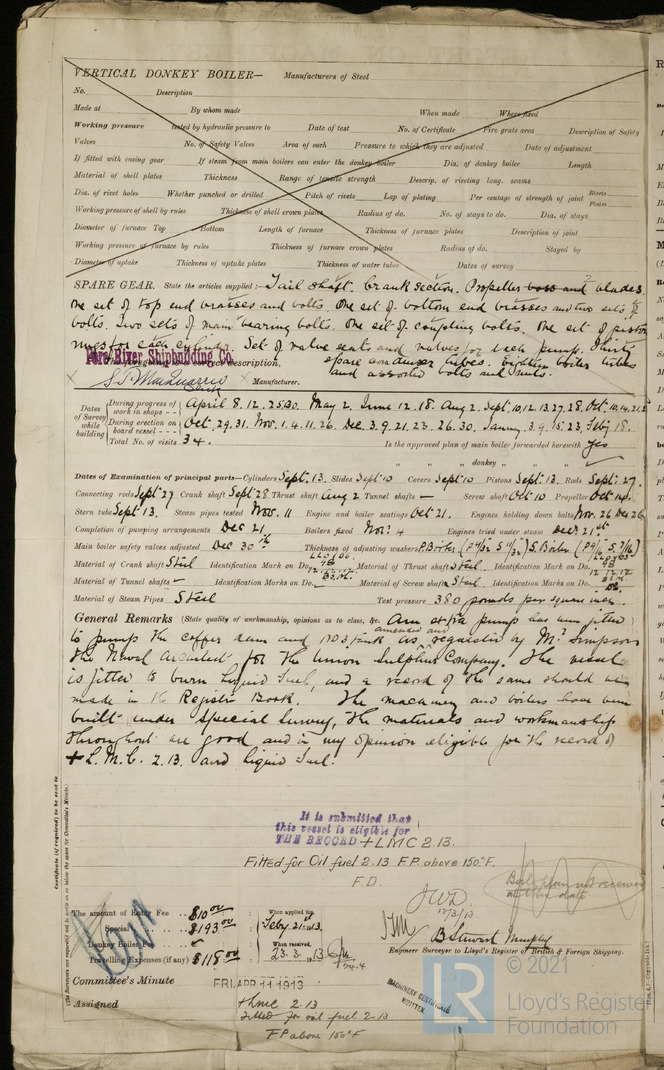 VERTICAL DONKEY BOILER— Manufacturers of Steel
No. Description
Made at By whom made When made Where fixed
Working pressure tested by hydraulic pressure to Date of test No. of Certificate Fire grate area Description of Safety
Valves No. of Safety Valves Area of each Pressure to which they are adjusted Date of adjustment
If fitted with easing gear If steam from main boilers can enter the donkey boiler Dia. of donkey boiler Length
Material of shell plates Thickness Range of tensile strength Descrip. of riveting long. seams
Dia. of rivet holes Whether punched or drilled Pitch of rivets Lap of plating Per centage of strength of joint Rivets Plates
Working pressure of shell by rules Thickness of shell crown plates Radius of do. No. of stays to do. Dia. of stays
Diameter of furnace Top Bottom Length of furnace Thickness of furnace plates Description of joint
Working pressure of furnace by rules Thickness of furnace crown plates Radius of do. Stayed by
Diameter of uptake Thickness of uptake plates Thickness of water tubes Dates of survey
SPARE GEAR. State the articles supplied:— Tail shaft. Crank section. Propeller boss and blades,
One set of top end brasses and bolts. One set of bottom end brasses and two sets of
bolts. Two sets of main bearing bolts. One set of coupling bolts. One set of piston
rings for each cylinder. Set of valve seats and valves for each pump. Thirty
spare condenser tubes. Eighteen boiler tubes
and assorted bolts and nuts.
The foregoing is a correct description,
Fore River Shipbuilding Co.
Manufacturer.
Dates of Survey while building
During progress of work in shops - - April 8. 12. 25. 30. May 2. June 12. 18. Aug 2. Sept. 10. 12. 13. 27. 28. Oct. 10. 14. 21.
During erection on board vessel - - - Oct. 29. 31. Nov. 1. 4. 11. 26. Dec. 3. 9. 21. 23. 26. 30. Jany. 3. 9. 15. 23. Feby 18.
Total No. of visits 34. Is the approved plan of main boiler forwarded herewith Yes
" " " donkey " "
Dates of Examination of principal parts—Cylinders Sept. 13. Slides Sept 10 Covers Sept 10 Pistons Sept. 13. Rods Sept. 27.
Connecting rods Sept 27 Crank shaft Sept 28 Thrust shaft Aug 2 Tunnel shafts — Screw shaft Oct 10 Propeller Oct 14.
Stern tube Sept 13. Steam pipes tested Nov. 11 Engine and boiler seatings Oct 21. Engines holding down bolts Nov. 26 Dec 26
Completion of pumping arrangements Dec 21 Boilers fixed Nov. 4 Engines tried under steam Dec. 21st
Main boiler safety valves adjusted Dec 30th Thickness of adjusting washers
Material of Crank shaft Steel Identification Mark on Do. Material of Thrust shaft Steel Identification Mark on Do.
Material of Tunnel shafts — Identification Marks on Do. Material of Screw shafts Steel Identification Marks on Do.
Material of Steam Pipes Steel Test pressure 380 pounds per square inch.
General Remarks (State quality of workmanship, opinions as to class, &c. An extra pump has been fitted
to pump the coffer dam and No 3 tank as amended and requested by Mr. Simpson
the Naval Architect for the Union Sulphur Company. The vessel
is fitted to burn liquid fuel, and a record of the same should be
made in the Register Book. The machinery and boilers have been
built under Special Survey, the materials and workmanship
throughout are good and in my opinion eligible for the record of
+ L.M.C. 2.13. and liquid fuel.
Certificate (if required) to be sent to
(The Surveyors are requested not to write on or below the space for Committee's Minute.)
It is submitted that
this vessel is eligible for
THE RECORD + LMC 2.13.
Fitted for Oil fuel 2.13 F.P. above 150°F.
F.D.
JWD
17/3/13
The amount of Entry Fee .. $10.00
Special .. $193.00
Donkey Boiler Fee ..
Travelling Expenses (if any) $118.00
When applied for, Feby 21st 13.
When received, 23.3.13
B. Stewart Murphy
Engineer Surveyor to Lloyd's Register of British & Foreign Shipping.
Committee's Minute FRI. APR 11 1913
Assigned + LMC 2.13
Fitted for oil fuel 2.13
F.P. above 150°F
MACHINERY CERTIFICATE
WRITTEN
© 2021
LR
Lloyd's Register
Foundation